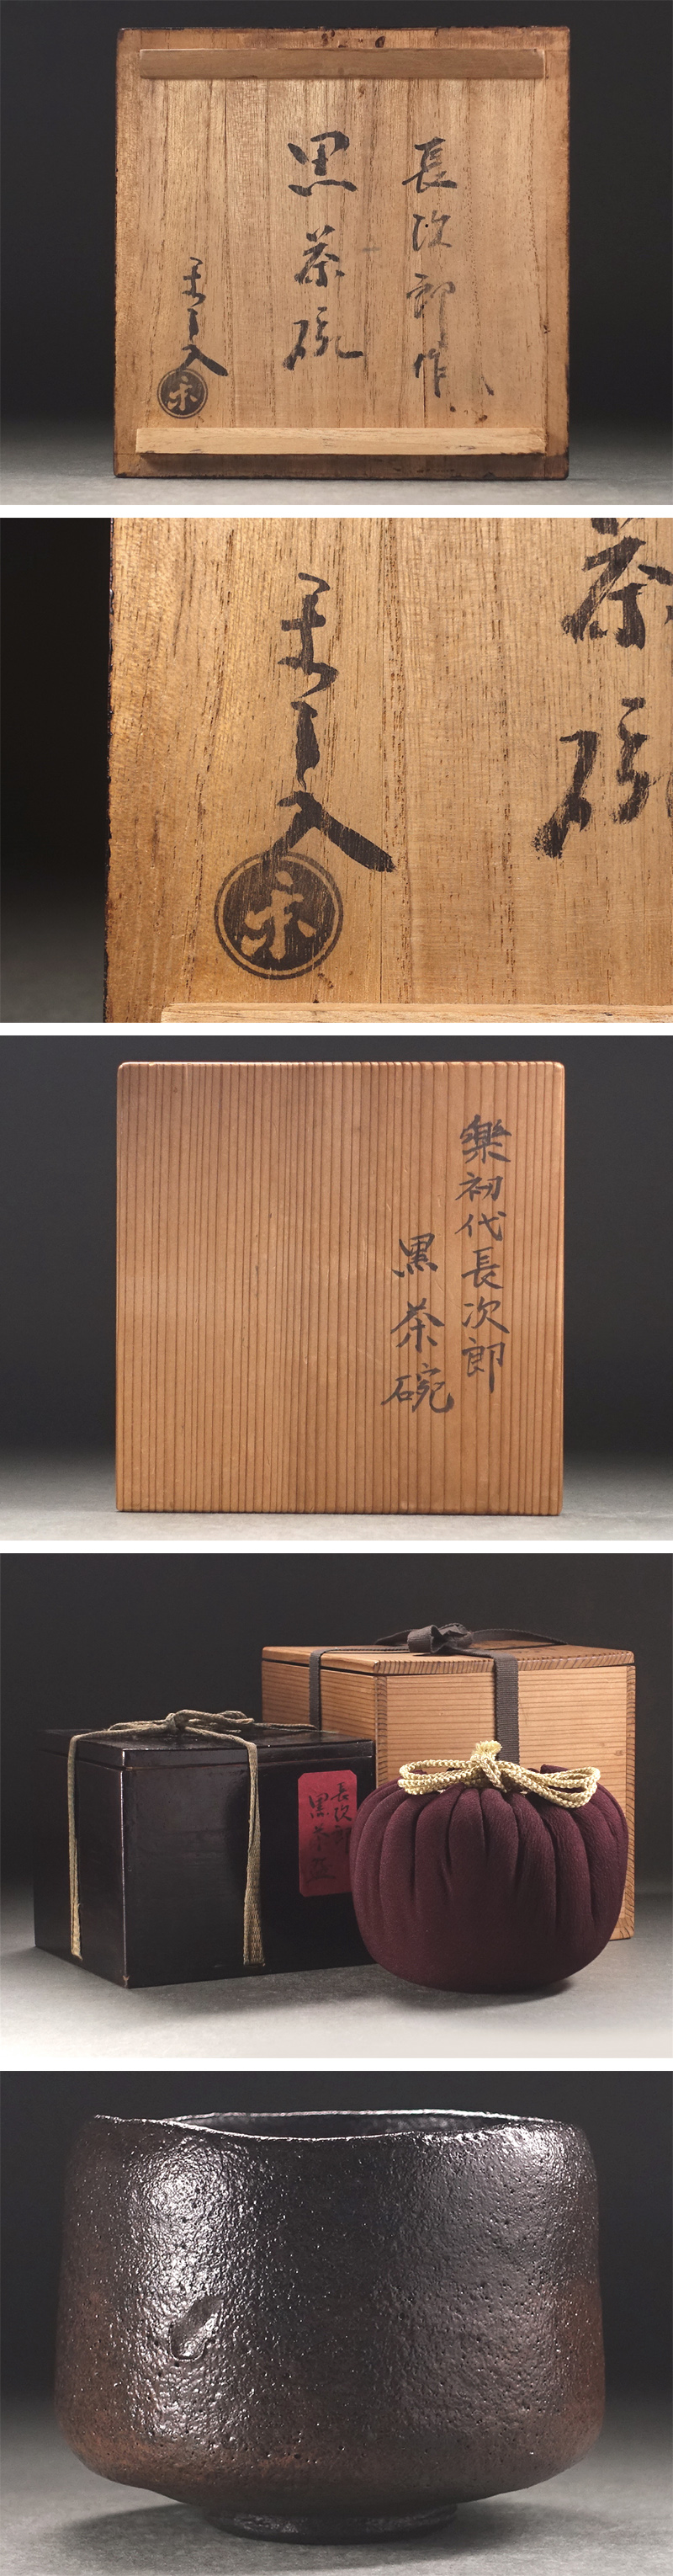 長次郎作
黒茶碗
入
茶
碗
入
樂初代長次郎
黒茶碗
長次郎
黒茶碗